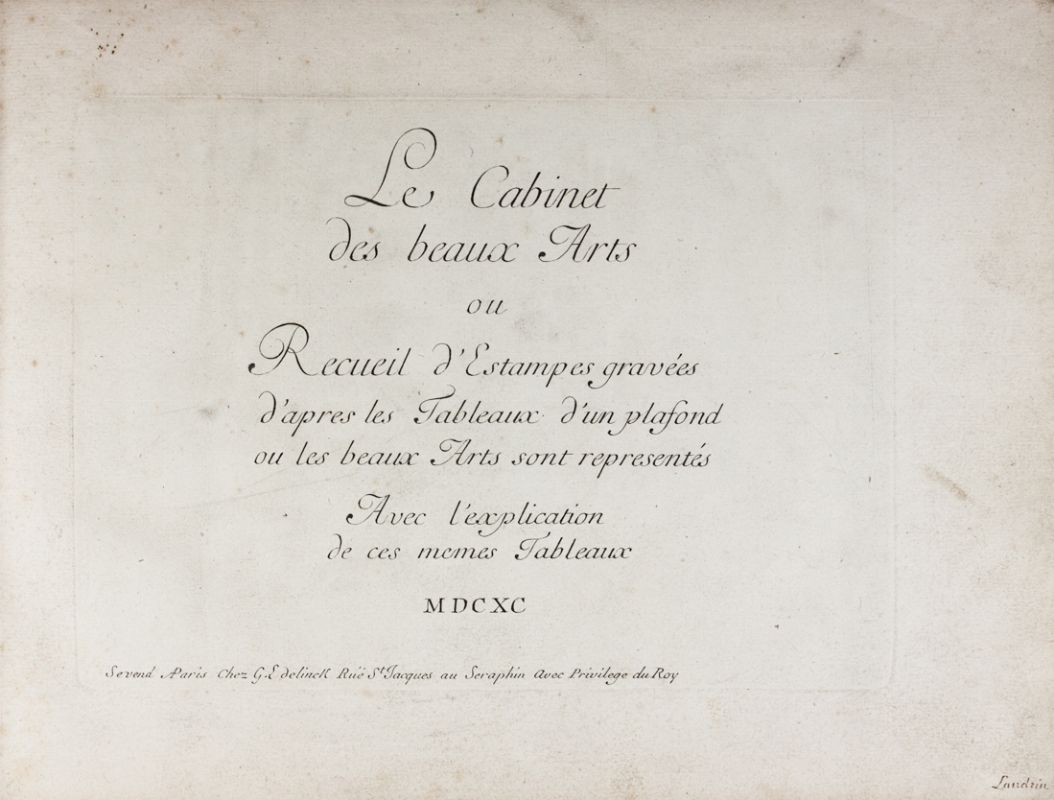 Le Cabinet
des beaux Arts
ou
Recueil d'Estampes gravées
d'apres les Tableaux d'un plafond
ou les beaux Arts sont representés
Avec l'explication
de ces memes Tableaux
MDCXC
Se vend AParis Chez G. Edelinck Rüe St. Jacques au Seraphin Avec Privilege du Roy
Landrin